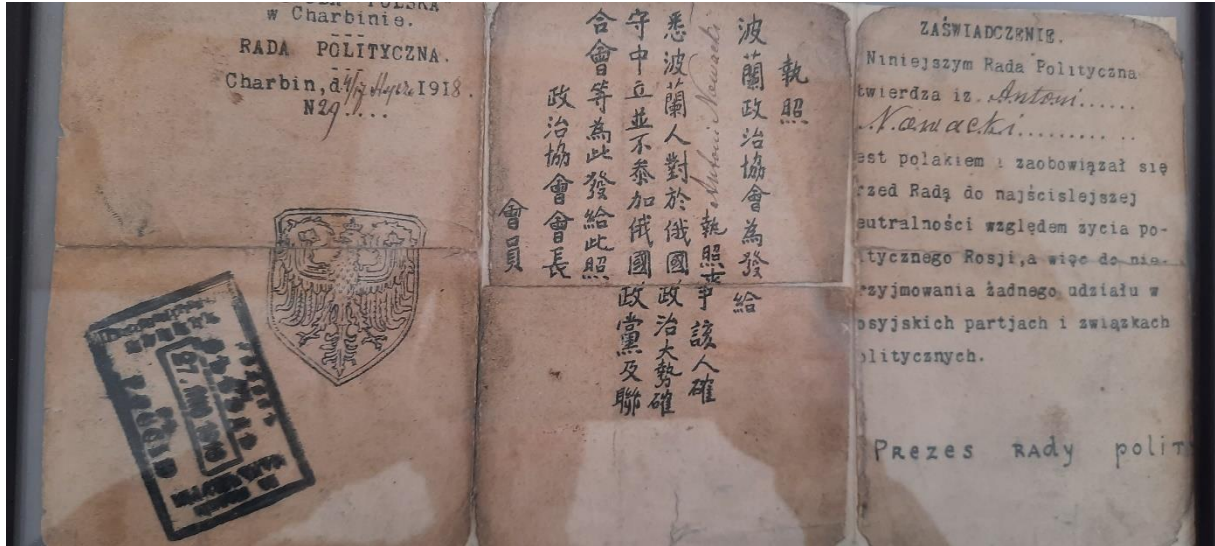 POLSKA
w Charbinie.
RADA POLITYCZNA.
Charbin, d 1918.
N 29....
執照
波蘭政治協會為發給
Antoni Nowacki 執照事該人確
悉波蘭人對於俄國政治大勢確
守中立並不叅加俄國政黨及聯
合會等為此發給此照
政治協會會長
會員
ZAŚWIADCZENIE.
Niniejszym Rada Polityczna
twierdza iz. Antoni......
Nowacki.........
est polakiem i zaobowiązał się
rzed Radą do najścislejszej
eutralności względem zycia po-
itycznego Rosji,a więc do nie-
rzyjmowania żadnego udziału w
osyjskich partjach i związkach
olitycznych.
Prezes Rady polit